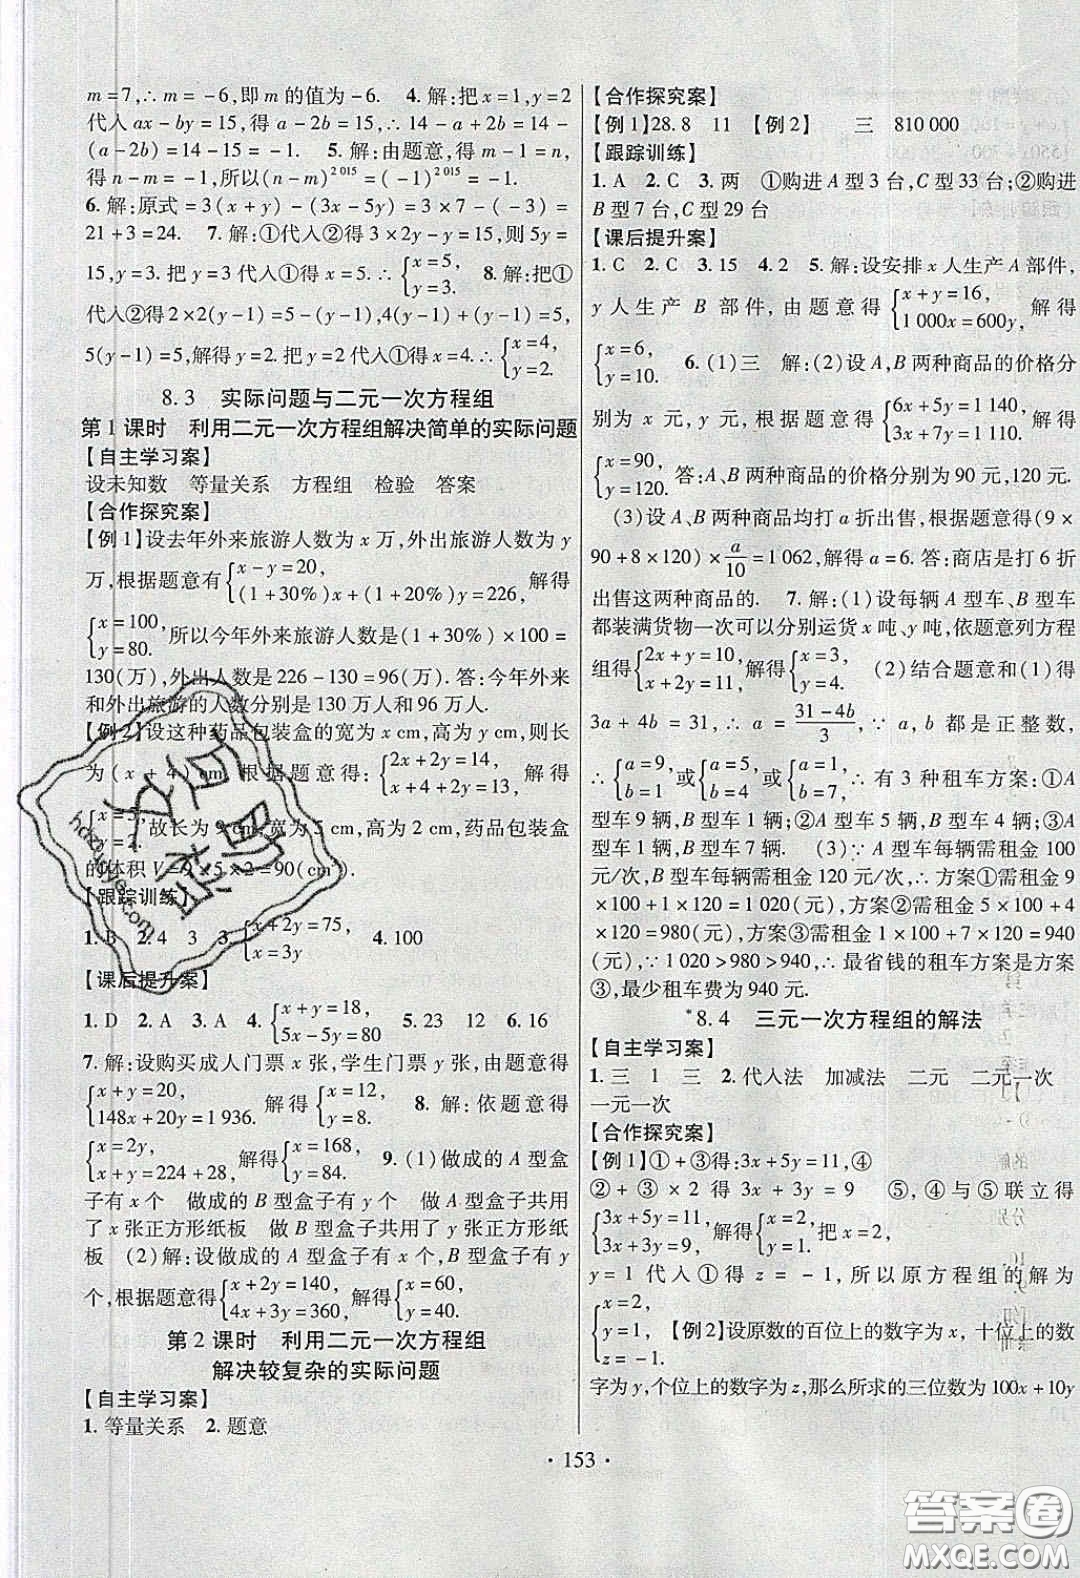 m=7,∴m=-6,即m的值为-6. 4.解:把x=1,y=2
代入ax-by=15,得a-2b=15,∴14-a+2b=14-
(a-2b)=14-15=-1. 5.解:由题意,得m-1=n,
得n-m=-1,所以(n-m)^2015=(-1)^2015=-1.
6.解:原式=3(x+y)-(3x-5y)=3×7-(-3)=
21+3=24. 7.解:①代入②得3×2y-y=15,则5y=
15,y=3.把y=3代入①得x=5.∴{x=5, y=3. 8.解:把①
代入②得2×2(y-1)=5-(y-1),4(y-1)+(y-1)=5,
5(y-1)=5,解得y=2.把y=2代入①得x=4.∴{x=4, y=2.
8.3 实际问题与二元一次方程组
第1课时 利用二元一次方程组解决简单的实际问题
【自主学习案】
设未知数 等量关系 方程组 检验 答案
【合作探究案】
【例1】设去年外来旅游人数为x万,外出旅游人数为y
万,根据题意有{x-y=20, (1+30%)x+(1+20%)y=226, 解得
{x=100, y=80. 所以今年外来旅游人数是(1+30%)×100=
130(万),外出人数是226-130=96(万).答:今年外来
和外出旅游的人数分别是130万人和96万人.
【例2】设这种药品包装盒的宽为x cm,高为y cm,则长
为(x+4)cm 根据题意得:{2x+2y=14, x+4+2y=13, 解得
{x=5, y=2. 故长为9 cm,宽为5 cm,高为2 cm,药品包装盒
的体积V=9×5×2=90(cm³).
【跟踪训练】
1.B 2.4 3 3.{x+2y=75, x=3y 4.100
【课后提升案】
1.D 2.A 3.A 4.{x+y=18, 5x-5y=80 5.23 12 6.16
7.解:设购买成人门票x张,学生门票y张,由题意得
{x+y=20, 148x+20y=1 936. 解得{x=12, y=8. 8.解:依题意得
{x=2y, x+y=224+28, 解得{x=168, y=84. 9.(1)做成的A型盒
子有x个 做成的B型盒子有y个 做A型盒子共用
了x张正方形纸板 做B型盒子共用了y张正方形纸
板 (2)解:设做成的A型盒子有x个,B型盒子有y
个,根据题意得{x+2y=140, 4x+3y=360, 解得{x=60, y=40.
第2课时 利用二元一次方程组
解决较复杂的实际问题
【自主学习案】
1.等量关系 2.题意
【合作探究案】
【例1】28.8 11 【例2】 三 810 000
【跟踪训练】
1.A 2.C 3.两 ①购进A型3台,C型33台;②购进
B型7台,C型29台
【课后提升案】
1.C 2.C 3.15 4.2 5.解:设安排x人生产A部件,
y人生产B部件,由题意得{x+y=16, 1 000x=600y, 解得
{x=6, y=10. 6.(1)三 解:(2)设A,B两种商品的价格分
别为x元,y元,{6x+5y=1 140, 3x+7y=1 110.
{x=90, y=120. 答:A、B两种商品的价格分别为90元,120元.
(3)设A、B两种商品均打a折出售,根据题意得(9×
90+8×120)×a/10=1 062,解得a=6.答:商店是打6折
出售这两种商品的. 7.解:(1)设每辆A型车、B型车
都装满货物一次可以分别运货x吨、y吨,依题意列方程
组得{2x+y=10, x+2y=11, 解得{x=3, y=4. (2)结合题意和(1)得
3a+4b=31,∴a=(31-4b)/3,∵a,b都是正整数,
∴{a=9, b=1 或{a=5, b=4 或{a=1, b=7, ∴有3种租车方案:①A
型车9辆,B型车1辆;②A型车5辆,B型车4辆;③A
型车1辆,B型车7辆. (3)∵A型车每辆需租金100
元/次,B型车每辆需租金120元/次,∴方案①需租金9
×100+1×120=1 020(元),方案②需租金5×100+4
×120=980(元),方案③需租金1×100+7×120=940
(元),∵1 020>980>940,∴最省钱的租车方案是方案
③,最少租车费为940元.
*8.4 三元一次方程组的解法
【自主学习案】
1.三 1 三 2.代人法 加减法 二元 二元一次
一元一次
【合作探究案】
【例1】①+③得:3x+5y=11,④
②+③×2得3x+3y=9 ⑤,④与⑤联立得
{3x+5y=11, 3x+3y=9, 解得{x=2, y=1. 把x=2,
y=1代入①得z=-1,所以原方程组的解为
{x=2, y=1, z=-1. 【例2】设原数的百位上的数字为x,十位上的数
字为y,个位上的数字为z,那么所求的三位数为100x+10y
·153·
答案圈
MXQE.COM